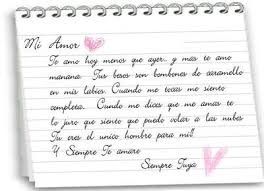 Mi Amor
Te amo hoy menos que ayer, y mas te amo
manana. Tus besos son bombones de caramello
en mis labios. Cuando me tocas me siento
completa. Cundo me dices que me amas te
lo juro que siento que puedo volar a las nubes
Tu eres el unico hombre para mi!!
Y Siempre Te amare
Siempre Tuya